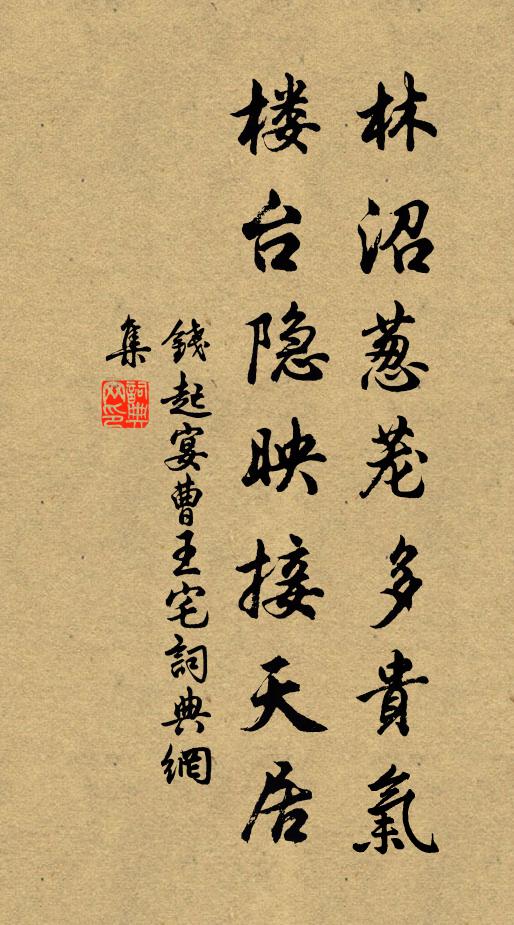 林沼葱茏多貴氣
楼台隐映接天居
錢起宴曹王宅詞典網
集
詞典網印